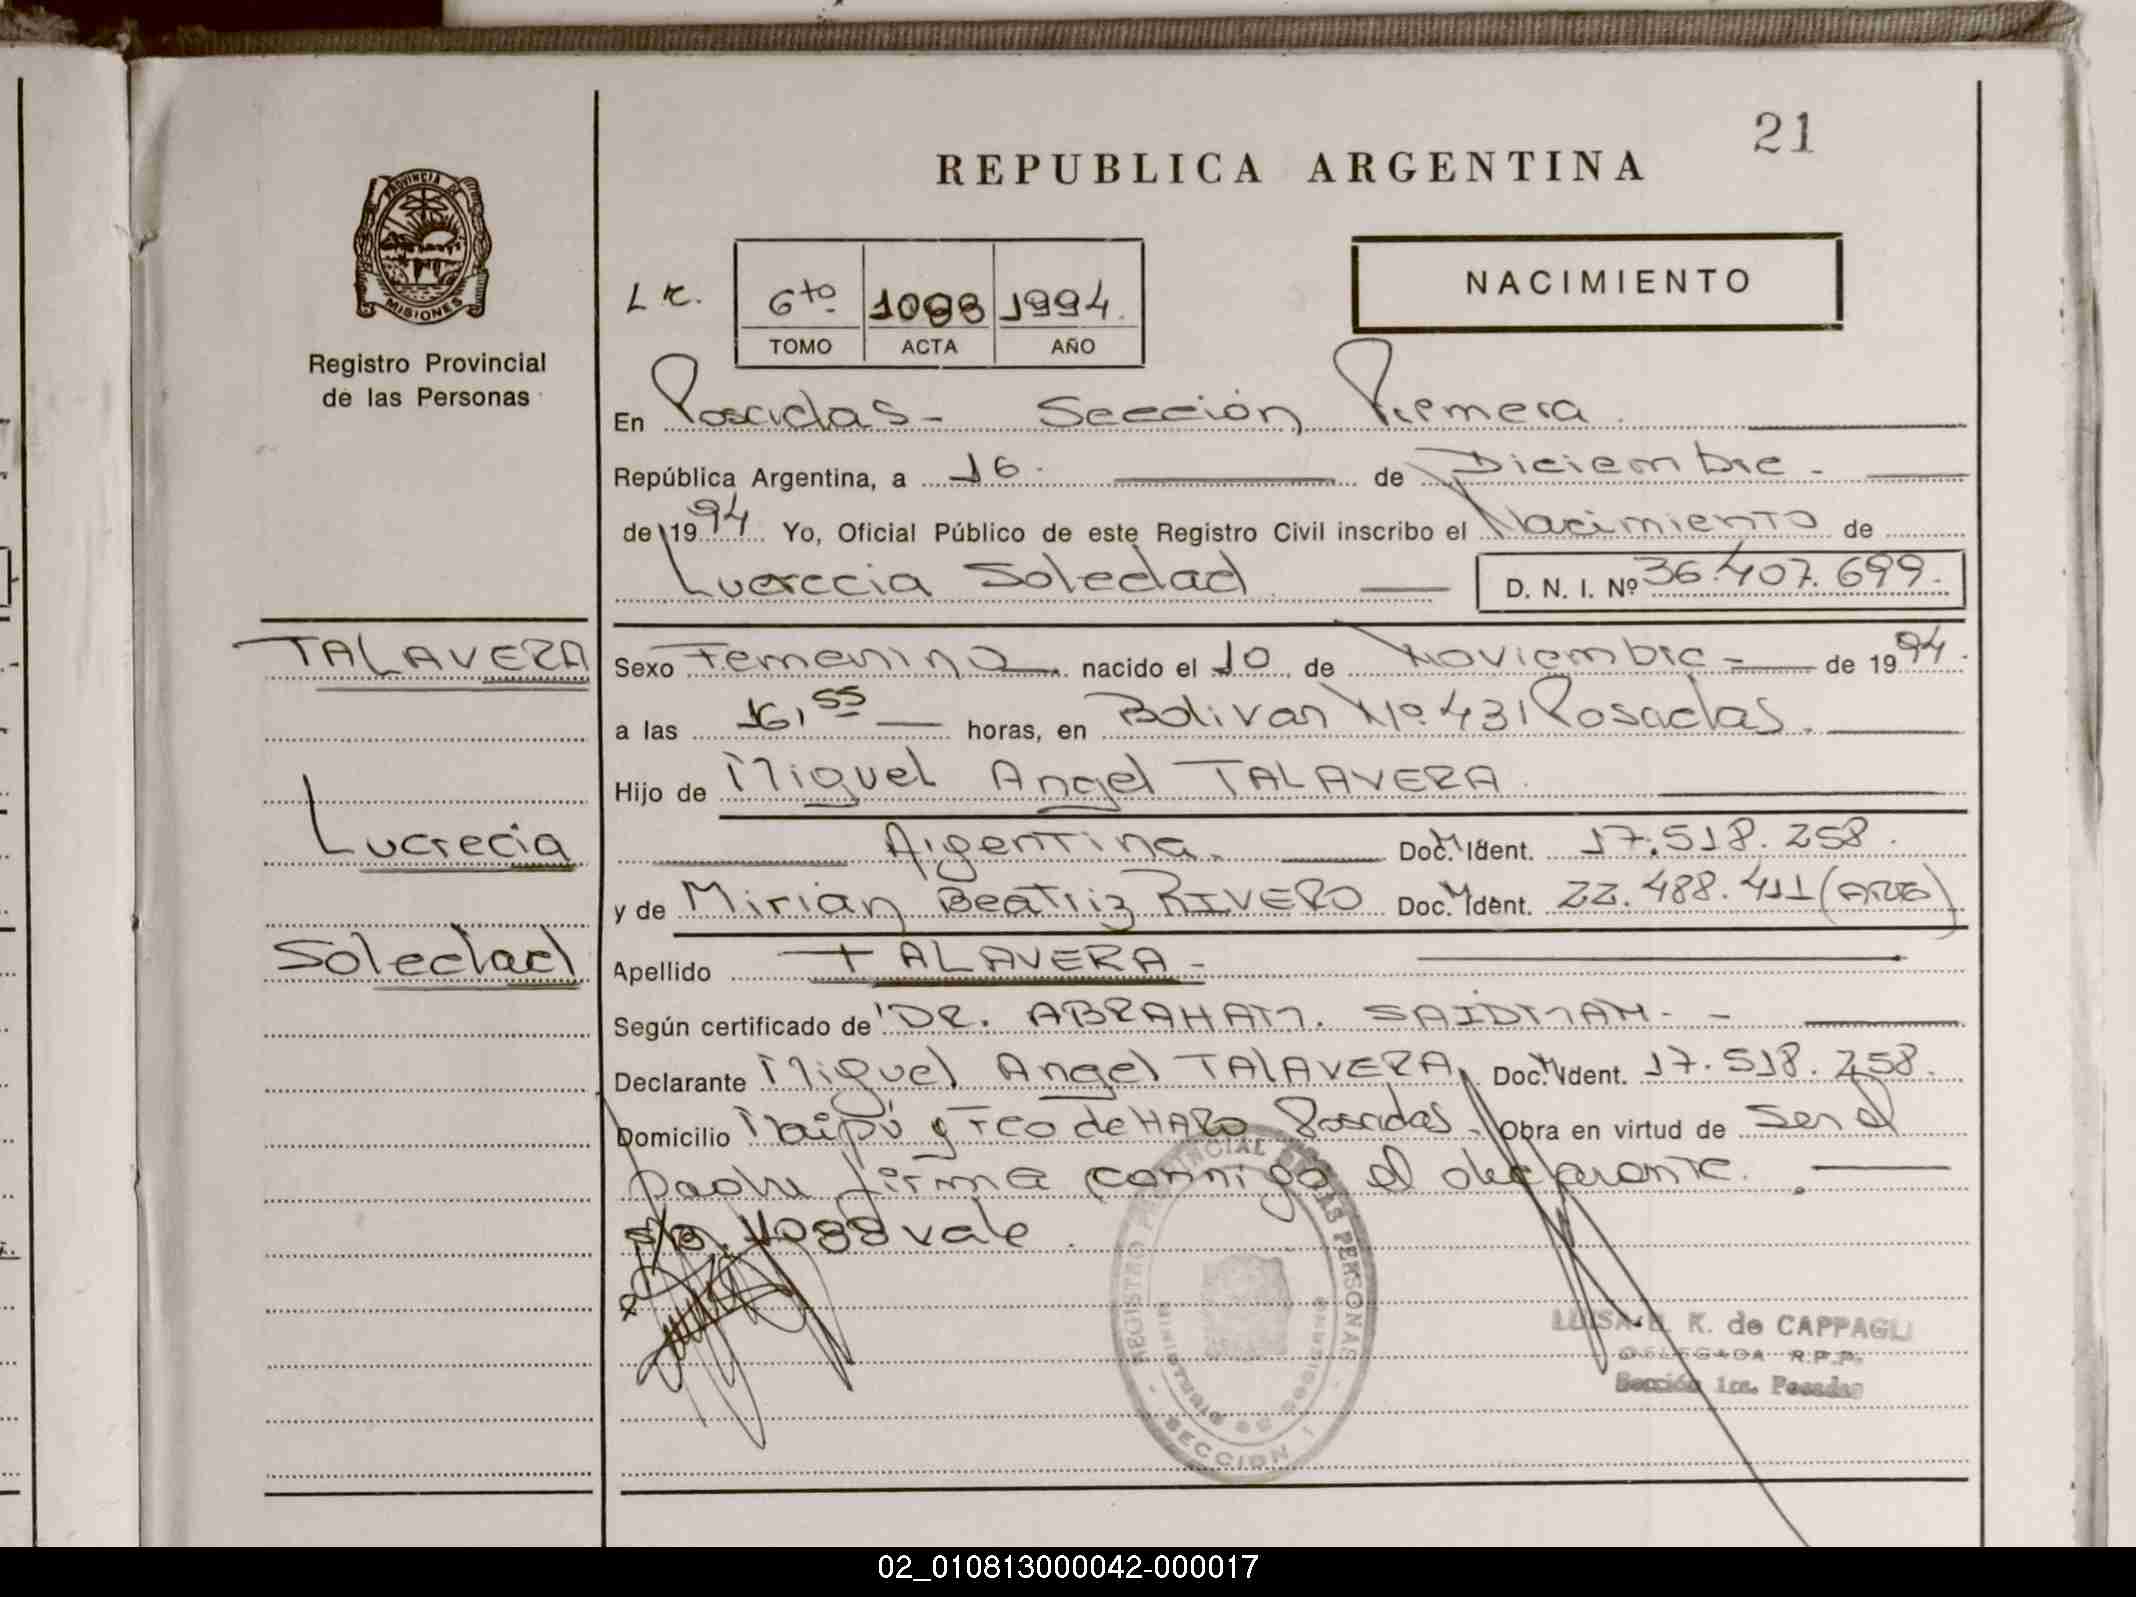 21
REPUBLICA ARGENTINA
PROVINCIA DE
MISIONES
Registro Provincial
de las Personas
NACIMIENTO
6to 1088 1994.
TOMO ACTA AÑO
En Posadas - Sección Primera
República Argentina, a 16 de Diciembre -
de 1994 Yo, Oficial Público de este Registro Civil inscribo el Nacimiento de
Lucrecia Soledad D. N. I. Nº 36.407.699.
TALAVERA
Lucrecia
Soledad
Sexo Femenino nacido el 10 de Noviembre - de 1994.
a las 16,55 horas, en Bolivar Nº 431 Posadas.
Hijo de Miguel Angel TALAVERA
Argentina. Doc. Ident. 17.518.258.
y de Mirian Beatriz RIVERO Doc. Ident. 22.488.411 (ARG)
Apellido TALAVERA -
Según certificado de DR. ABRAHAM. SAIDMAN. -
Declarante Miguel Angel TALAVERA Doc. Ident. 17.518.258.
Domicilio Maipú y Fco de HARO Posadas. Obra en virtud de ser el
padre firma conmigo el declarante.
s/b. 1088 vale
REGISTRO PROVINCIAL DE LAS PERSONAS
MINISTERIO DE GOBIERNO
SECCION 1
LUISA K. de CAPPAGLI
DELEGADA R.P.P.
Sección 1ra. Posadas
02_010813000042-000017